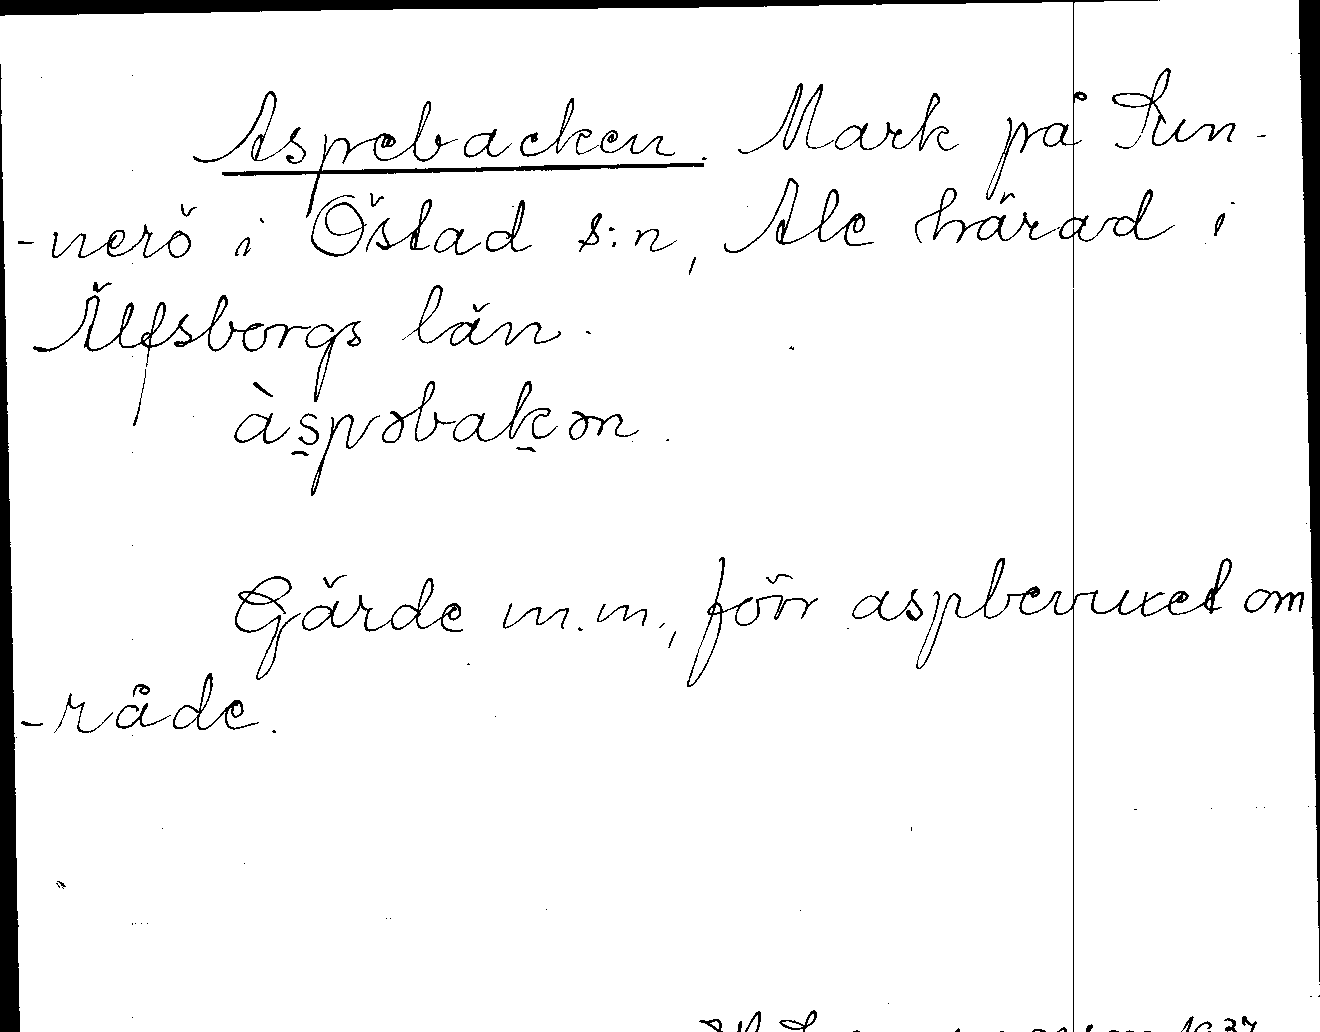 Aspebacken. Mark på Sun-
-nerö i Östad s:n, Ale härad i
Älfsborgs län.
àspəbakən.
Gärde m.m., förr aspbevuxet om
-råde.
1937